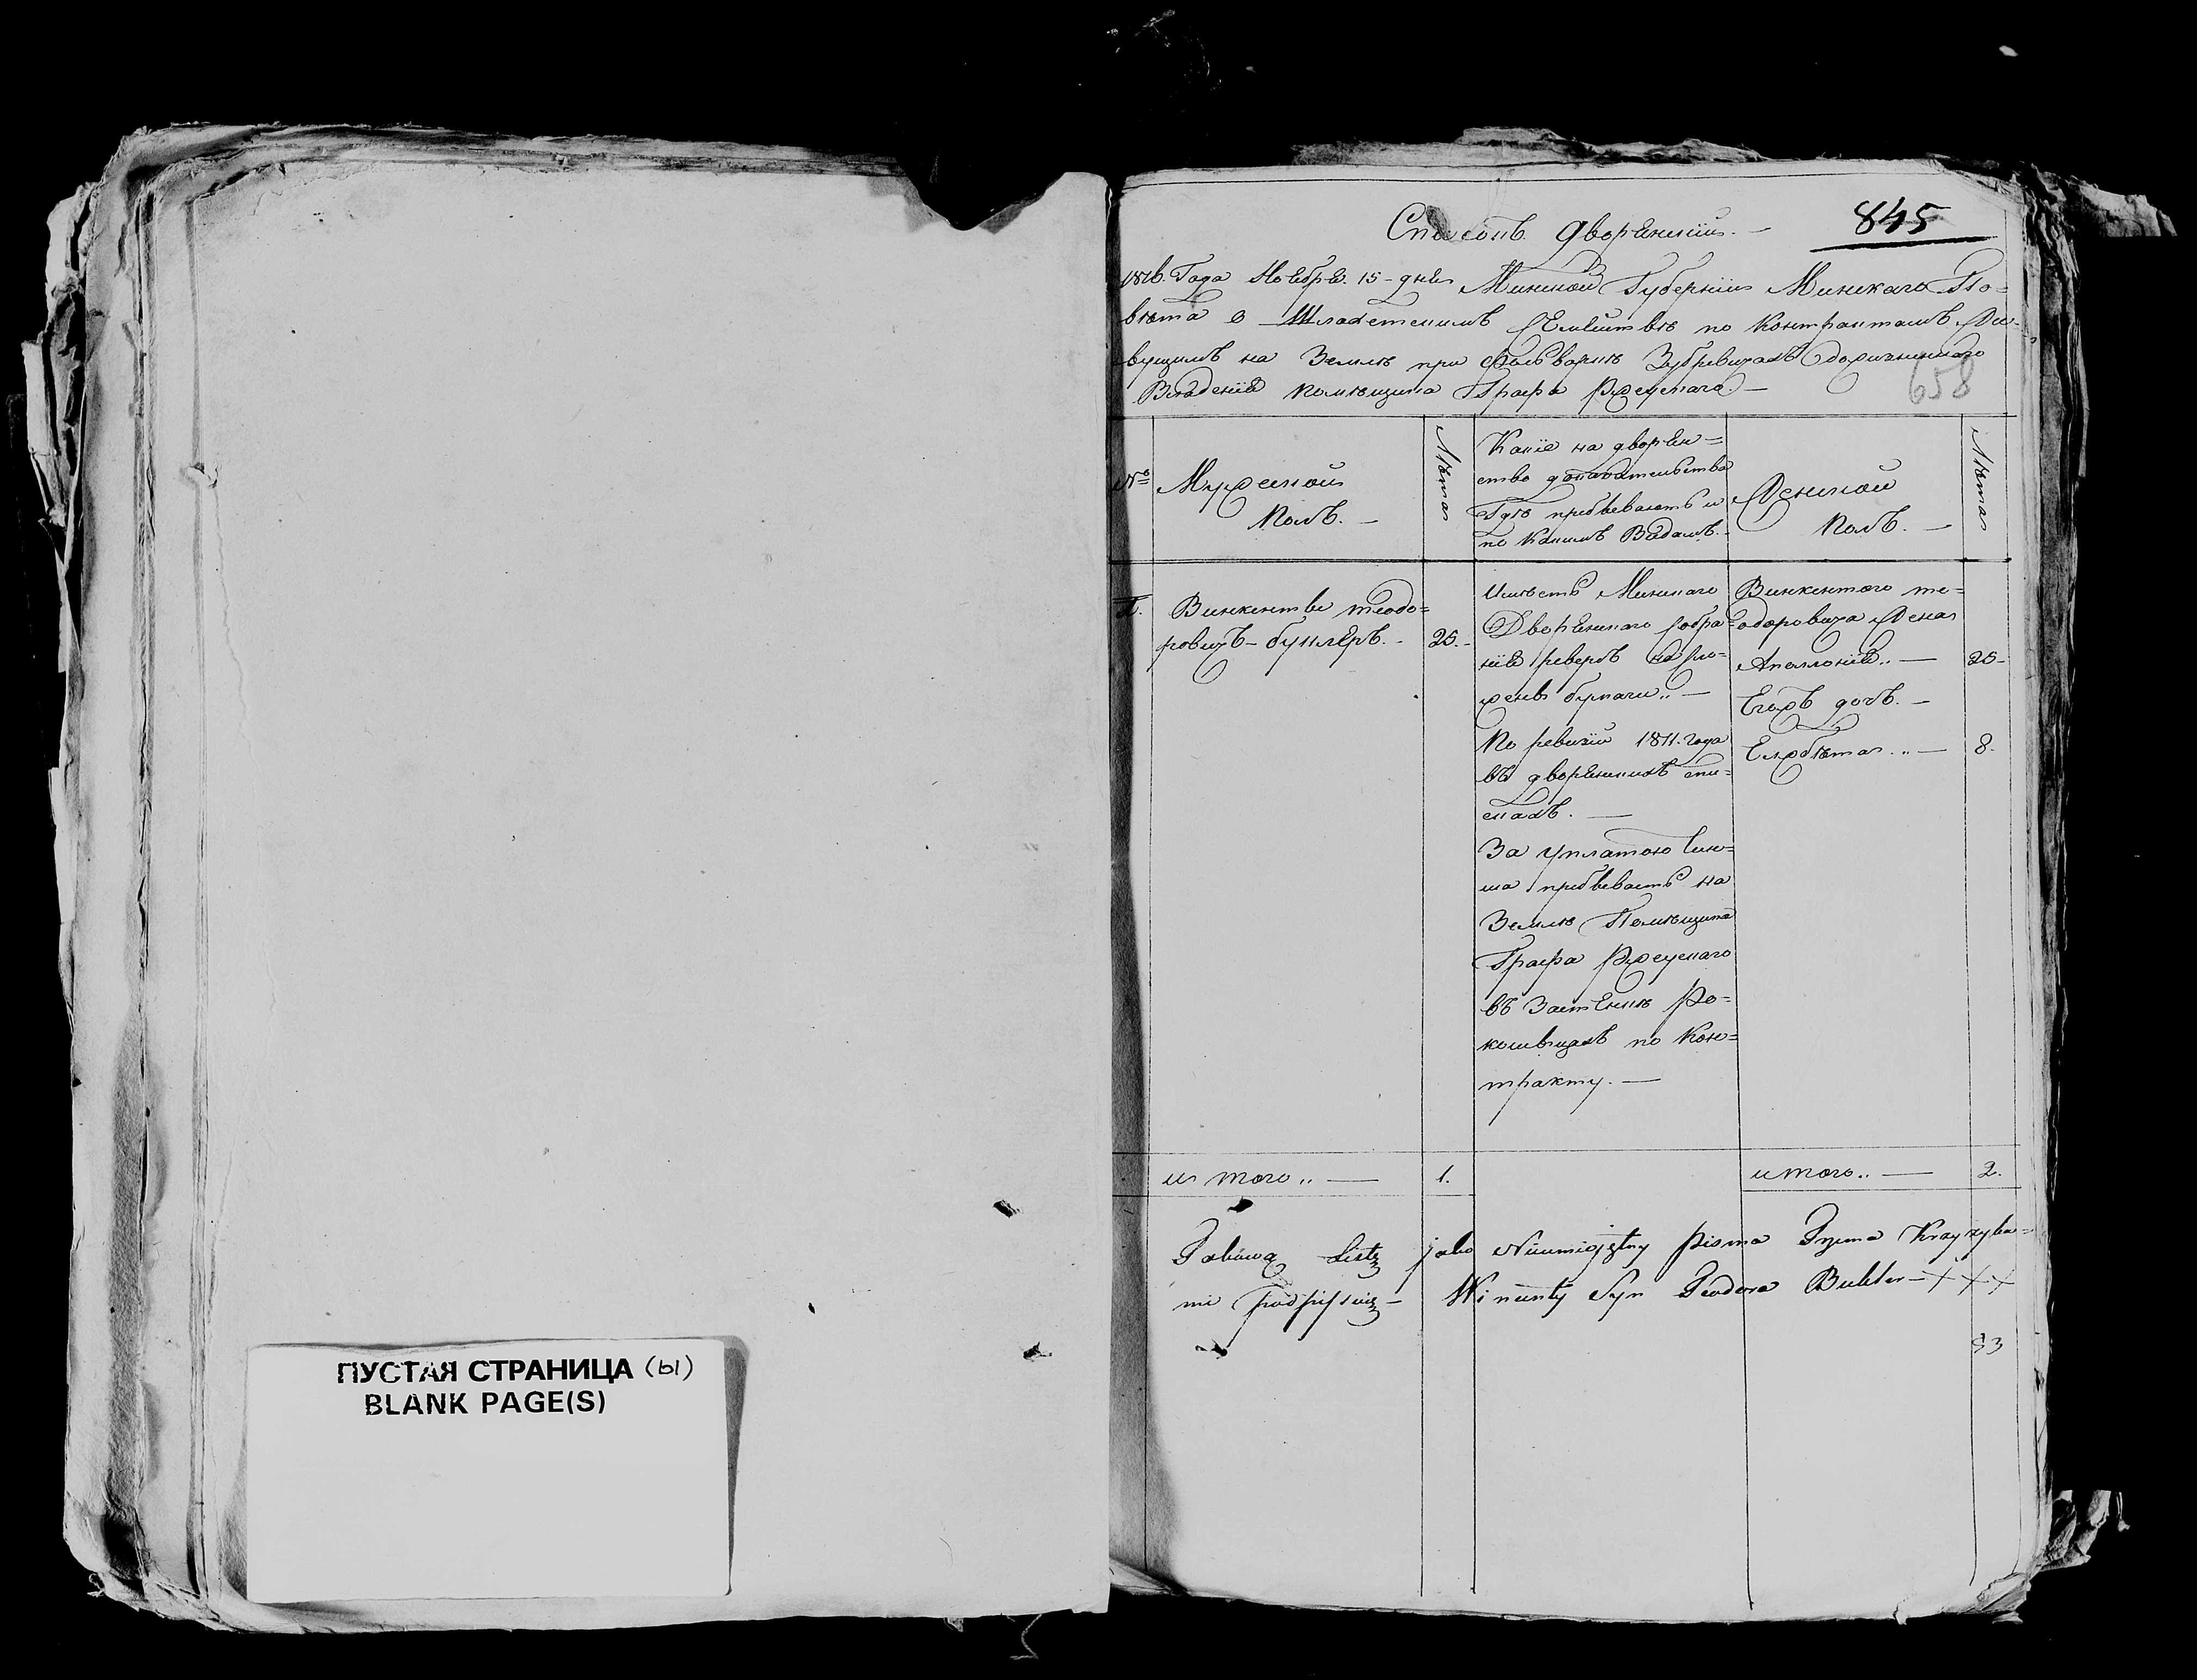 ПУСТАЯ СТРАНИЦА (ы)
BLANK PAGE(S)
845
Списокъ дворянскій. —
1816. Года Ноября. 15 - дня Минской Губерніи Минскаго По=
вѣта о Шляхетскихъ Семействѣ по Контрактамъ Жи=
вущимъ на Землѣ при Фольваркѣ Зубревичахъ
Владенія помѣщика Графа Ржеускаго —
658
№
Мужеской
полъ. —
Лѣта
Какіе на дворян=
ство доказательства
Гдѣ пребываютъ и
по какимъ Видамъ. -
Женской
полъ. —
Лѣта
1.
Винкентіи теодо=
ровичъ - буклеръ. -
25. -
Имѣетъ Минскаго
Дворянскаго Собра=
нія реверсъ на сло=
женя бумаги „ —
По ревизіи 1811. года
въ дворянскихъ спи=
скахъ. —
За уплатою Чин=
ша пребываетъ на
Землѣ Помѣщика
Графа Ржеускаго
въ Застенкѣ Ро=
ковицахъ по Кон=
тракту. —
Винкентого те=
одоровича Жена
Аполлонія „ —
25 -
Егожъ дочь. —
Елзбѣта „ —
8.
и того „ —
1.
итого „ —
2.
Takową Listę jako Nieumiejętny pisma Trzema Krzyżyka=
mi podpisuię — Wincenty Syn Teodora Bukler — + + +
83